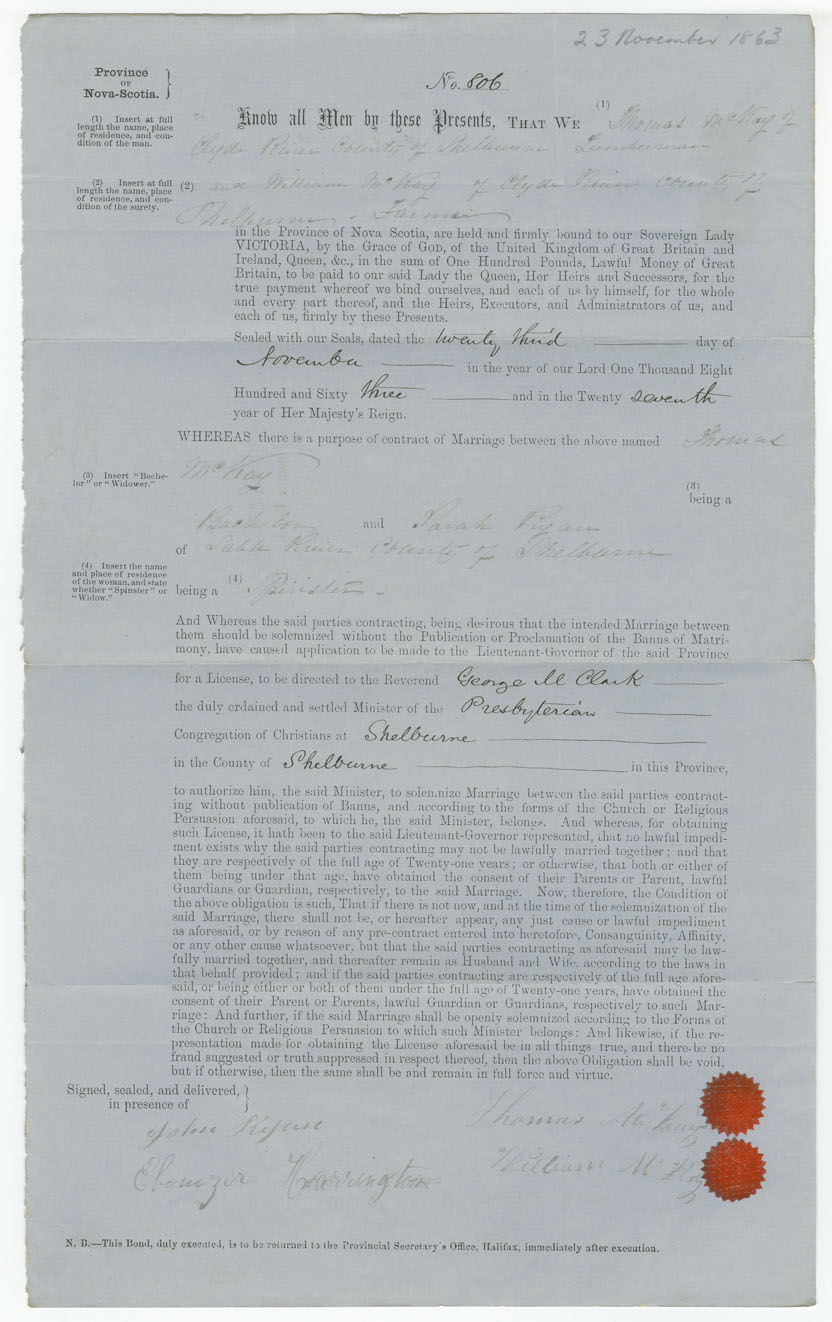 23 November 1863
Province
OF
Nova-Scotia. }
No. 806
(1) Insert at full length the name, place of residence, and condition of the man.
Know all Men by these Presents, THAT WE (1) Thomas McKay of
Clyde River County of Shelburne Lumberman
(2) Insert at full length the name, place of residence, and condition of the surety.
(2) and William McKay of Clyde River County of
Shelburne - Farmer
in the Province of Nova Scotia, are held and firmly bound to our Sovereign Lady
VICTORIA, by the Grace of GOD, of the United Kingdom of Great Britain and
Ireland, Queen, &c., in the sum of One Hundred Pounds, Lawful Money of Great
Britain, to be paid to our said Lady the Queen, Her Heirs and Successors, for the
true payment whereof we bind ourselves, and each of us by himself, for the whole
and every part thereof, and the Heirs, Executors, and Administrators of us, and
each of us, firmly by these Presents.
Sealed with our Seals, dated the twenty third day of
November in the year of our Lord One Thousand Eight
Hundred and Sixty three and in the Twenty seventh
year of Her Majesty's Reign.
WHEREAS there is a purpose of contract of Marriage between the above named Thomas
McKay
(3) Insert "Bachelor" or "Widower."
(3)
being a
Bachelor and Sarah
of Sable River County of Shelburne
(4) Insert the name and place of residence of the woman, and state whether "Spinster" or "Widow."
being a (4) Spinster -
And Whereas the said parties contracting, being desirous that the intended Marriage between
them should be solemnized without the Publication or Proclamation of the Banns of Matri-
mony, have caused application to be made to the Lieutenant-Governor of the said Province
for a License, to be directed to the Reverend George M Clark
the duly ordained and settled Minister of the Presbyterian
Congregation of Christians at Shelburne
in the County of Shelburne in this Province,
to authorize him, the said Minister, to solemnize Marriage between the said parties contract-
ing without publication of Banns, and according to the forms of the Church or Religious
Persuasion aforesaid, to which he, the said Minister, belongs. And whereas, for obtaining
such License, it hath been to the said Lieutenant-Governor represented, that no lawful impedi-
ment exists why the said parties contracting may not be lawfully married together; and that
they are respectively of the full age of Twenty-one years; or otherwise, that both or either of
them being under that age, have obtained the consent of their Parents or Parent, lawful
Guardians or Guardian, respectively, to the said Marriage. Now, therefore, the Condition of
the above obligation is such, That if there is not now, and at the time of the solemnization of the
said Marriage, there shall not be, or hereafter appear, any just cause or lawful impediment
as aforesaid, or by reason of any pre-contract entered into heretofore, Consanguinity, Affinity,
or any other cause whatsoever, but that the said parties contracting as aforesaid may be law-
fully married together, and thereafter remain as Husband and Wife, according to the laws in
that behalf provided; and if the said parties contracting are respectively of the full age afore-
said, or being either or both of them under the full age of Twenty-one years, have obtained the
consent of their Parent or Parents, lawful Guardian or Guardians, respectively to such Mar-
riage: And further, if the said Marriage shall be openly solemnized according to the Forms of
the Church or Religious Persuasion to which such Minister belongs: And likewise, if the re-
presentation made for obtaining the License aforesaid be in all things true, and there be no
fraud suggested or truth suppressed in respect thereof, then the above Obligation shall be void,
but if otherwise, then the same shall be and remain in full force and virtue.
Signed, sealed, and delivered, }
in presence of
John
Thomas McKay
Ebenezer Harrington
William McKay
N. B.—This Bond, duly executed, is to be returned to the Provincial Secretary's Office, Halifax, immediately after execution.